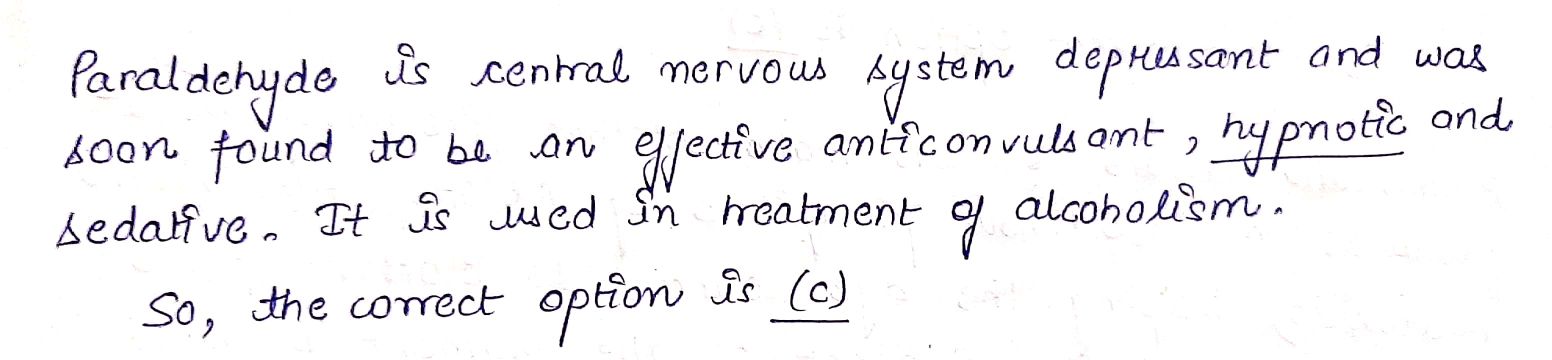 Paraldehyde is central nervous system depressant and was
soon found to be an effective anticonvulsant, hypnotic and
sedative. It is used in treatment of alcoholism.
So, the correct option is (c)